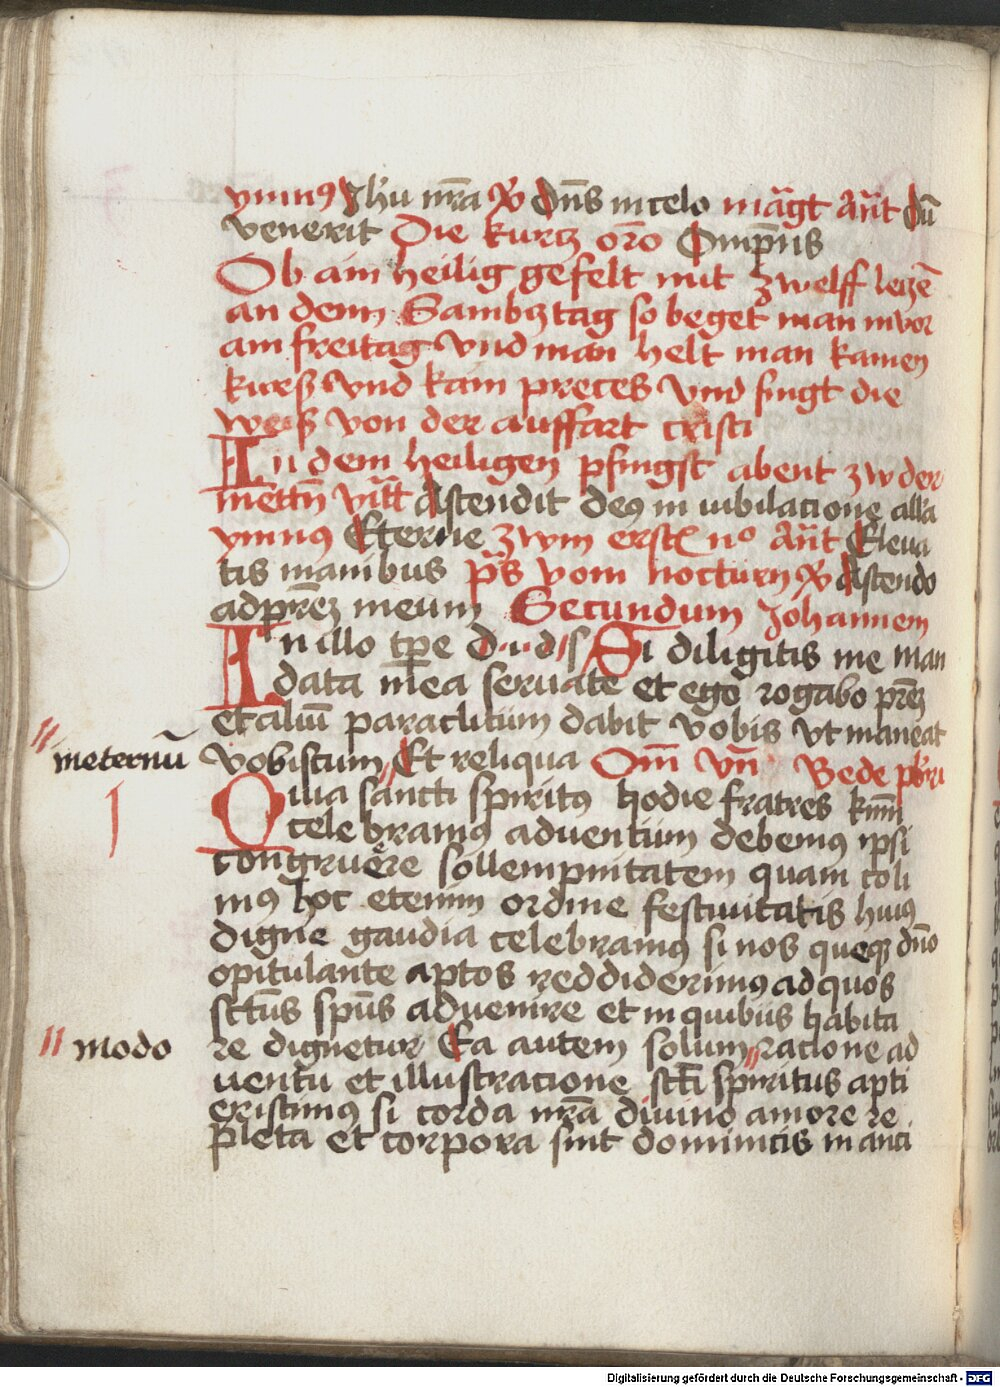 ymnus Jhu nr̄a ꝟ Dn̄s in celo māgt An̄t Dū
venerit Die kurtz oro Om̄pn̄s
Ob ain heilig gefelt mit zwelff letzē
an dem Sambtztag so beget man in vor
am freitag Vnd man helt man kainen
kurß Vnd kain preces Vnd singt die
weis von der auffart cristi
In dem heiligen pfingst abent zw der
mettn̄ vīt̄t Astendit deus in iubilacione all'a
ymnus Eterne zwm erstē n° An̄t Eleua
tis manibus p̄s vom nocturn ꝟ Astendo
ad pr̄em meum Secundum Johannem
In illo tp̄e d. i. d. s. Si diligitis me man
data mea seruate et ego rogabo pr̄em
et aliū paraclitum dabit vobis vt maneat
vobistum Et reliqua Om̄ vn̄ Bede pb̄ri
in eternū
Quia sancti spiritus hodie fratres km̄i
celebramus aduentum debemus ipsi
congruere sollempnitatem quam coli
mus hoc etenim ordine festiuitatis huius
digne gaudia celebramus si nos queq dn̄o
opitulante aptos reddiderimus ad quos
sctūs spūs aduenire et in quibus habita
re dignetur Ea autem solum racione ad
modo
uentu et illustracione scti spiritus apti
eristimus si corda nr̄a diuino amore re
pleta et corpora sint dominicis man̄ci
Digitalisierung gefördert durch die Deutsche Forschungsgemeinschaft - DFG